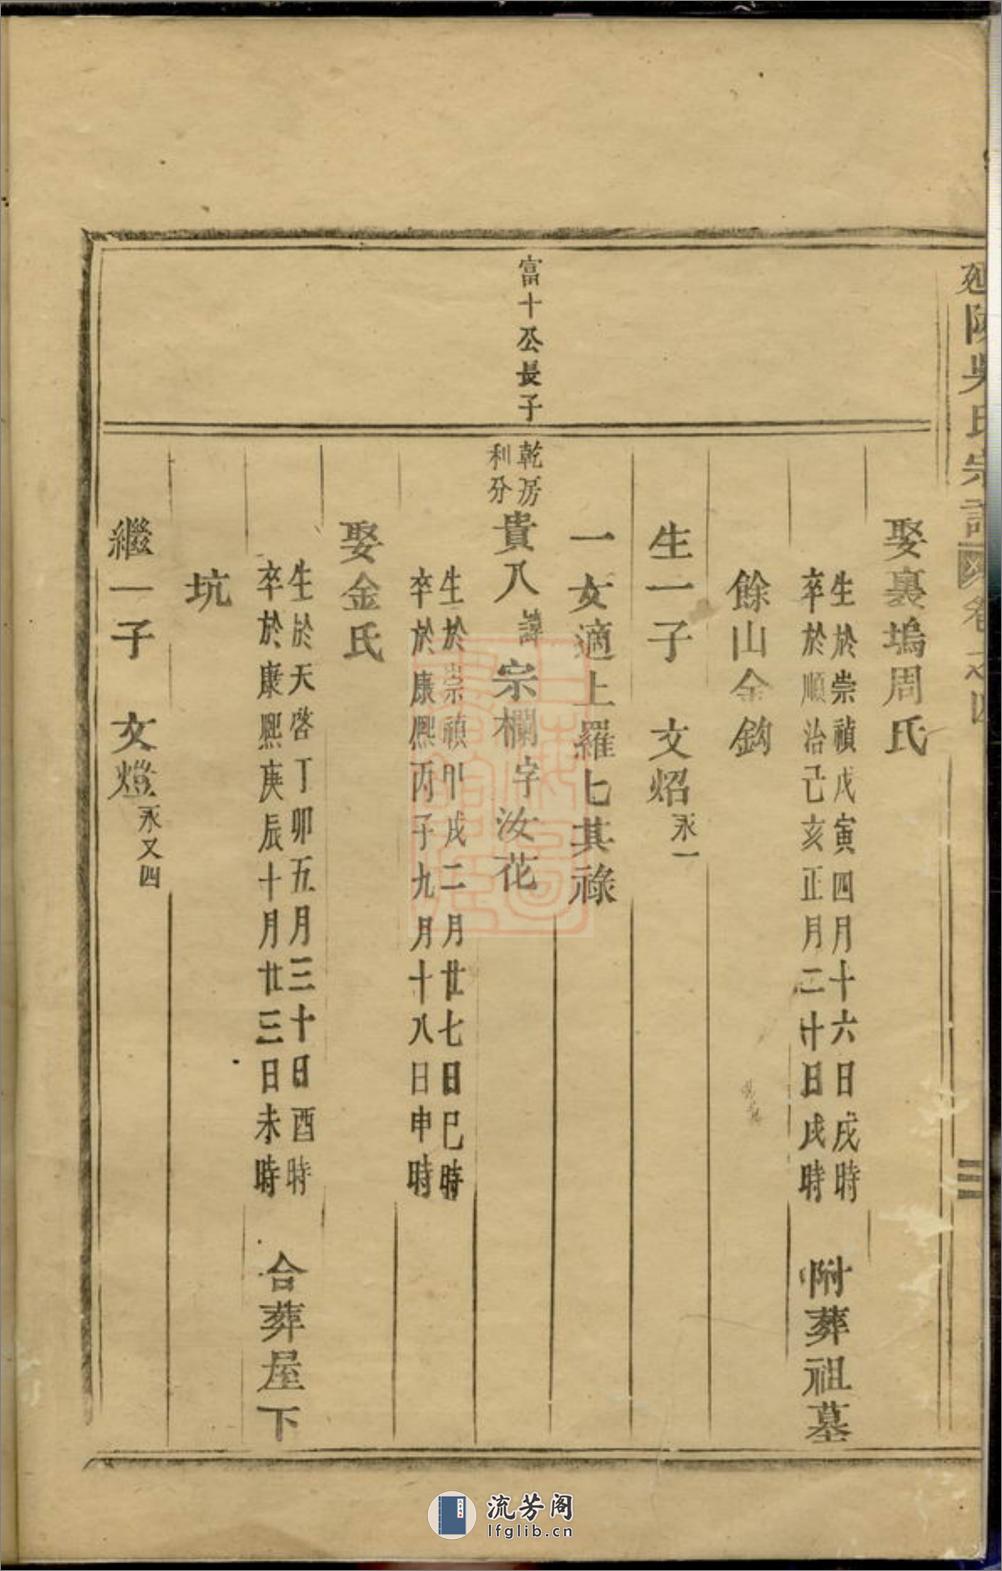 延陵吳氏宗譜 卷之四
娶裏塢周氏
生於崇禎戊寅四月十六日戌時
卒於順治己亥正月二十日戌時
附葬祖墓
餘山金鈎
生一子 文炤 永一
一女適上羅七其祿
富十公長子
乾房
利分
貴八 諱宗欄字汝花
生於崇禎甲戌二月廿七日巳時
卒於康熙丙子九月十八日申時
娶金氏
生於天啓丁卯五月三十日酉時
卒於康熙庚辰十月廿三日未時
合葬屋下
坑
繼一子 文燈 永又四
流芳阁
lfglib.cn